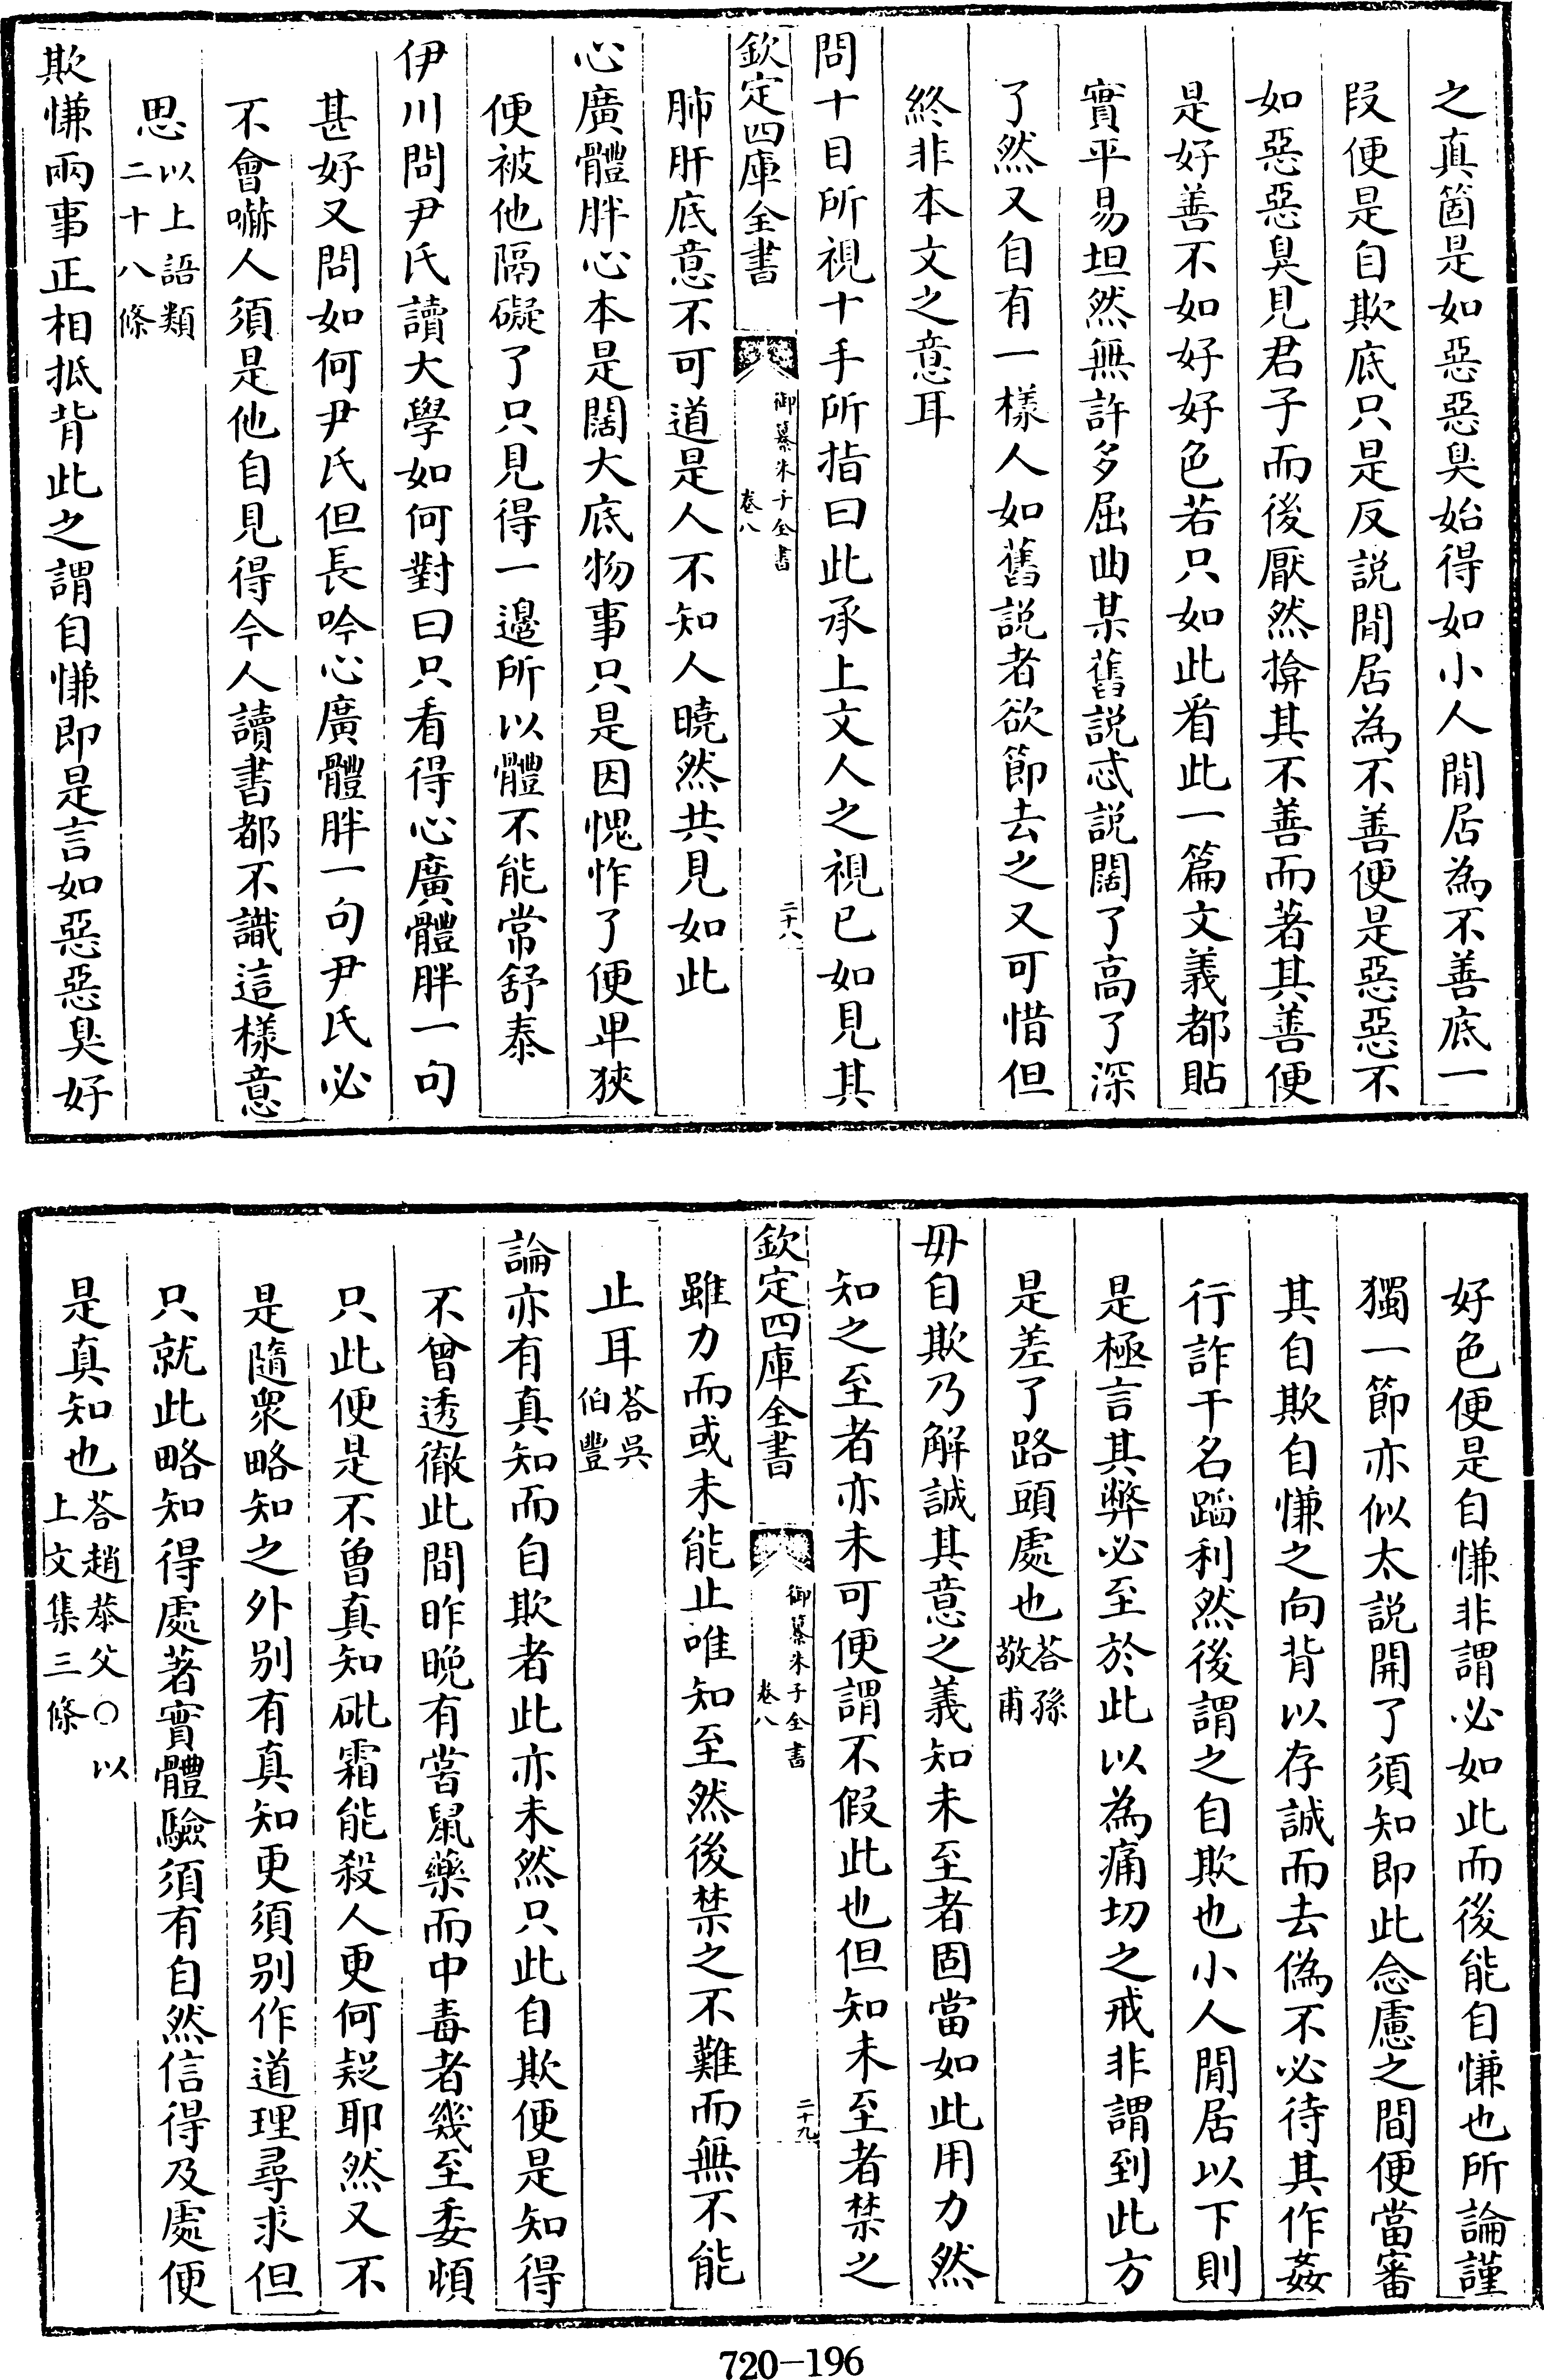 之真箇是如惡惡臭始得如小人閒居為不善底一
段便是自欺底只是反説閒居為不善便是惡惡不
如惡惡臭見君子而後厭然揜其不善而著其善便
是好善不如好好色若只如此看此一篇文義都貼
實平易坦然無許多屈曲某舊説忒説闊了高了深
了然又自有一樣人如舊説者欲節去之又可惜但
終非本文之意耳
問十目所視十手所指曰此承上文人之視已如見其
欽定四庫全書
御纂朱子全書
卷八
二十八
肺肝底意不可道是人不知人曉然共見如此
心廣體胖心本是闊大底物事只是因愧怍了便卑狹
便被他隔礙了只見得一邊所以體不能常舒泰
伊川問尹氏讀大學如何對曰只看得心廣體胖一句
甚好又問如何尹氏但長吟心廣體胖一句尹氏必
不會嚇人須是他自見得今人讀書都不識這樣意
思以上語類
二十八條
欺慊兩事正相抵背此之謂自慊即是言如惡惡臭好
好色便是自慊非謂必如此而後能自慊也所論謹
獨一節亦似太説開了須知即此念慮之間便當審
其自欺自慊之向背以存誠而去偽不必待其作姦
行詐干名蹈利然後謂之自欺也小人閒居以下則
是極言其弊必至於此以為痛切之戒非謂到此方
是差了路頭處也荅孫
敬甫
毋自欺乃解誠其意之義知未至者固當如此用力然
知之至者亦未可便謂不假此也但知未至者禁之
欽定四庫全書
御纂朱子全書
卷八
二十九
雖力而或未能止唯知至然後禁之不難而無不能
止耳荅吳
伯豐
論亦有真知而自欺者此亦未然只此自欺便是知得
不曾透徹此間昨晚有嘗鼠藥而中毒者幾至委頓
只此便是不曾真知砒霜能殺人更何疑耶然又不
是隨衆略知之外别有真知更須别作道理尋求但
只就此略知得處著實體驗須有自然信得及處便
是真知也荅趙恭父〇以
上文集三條
720-196